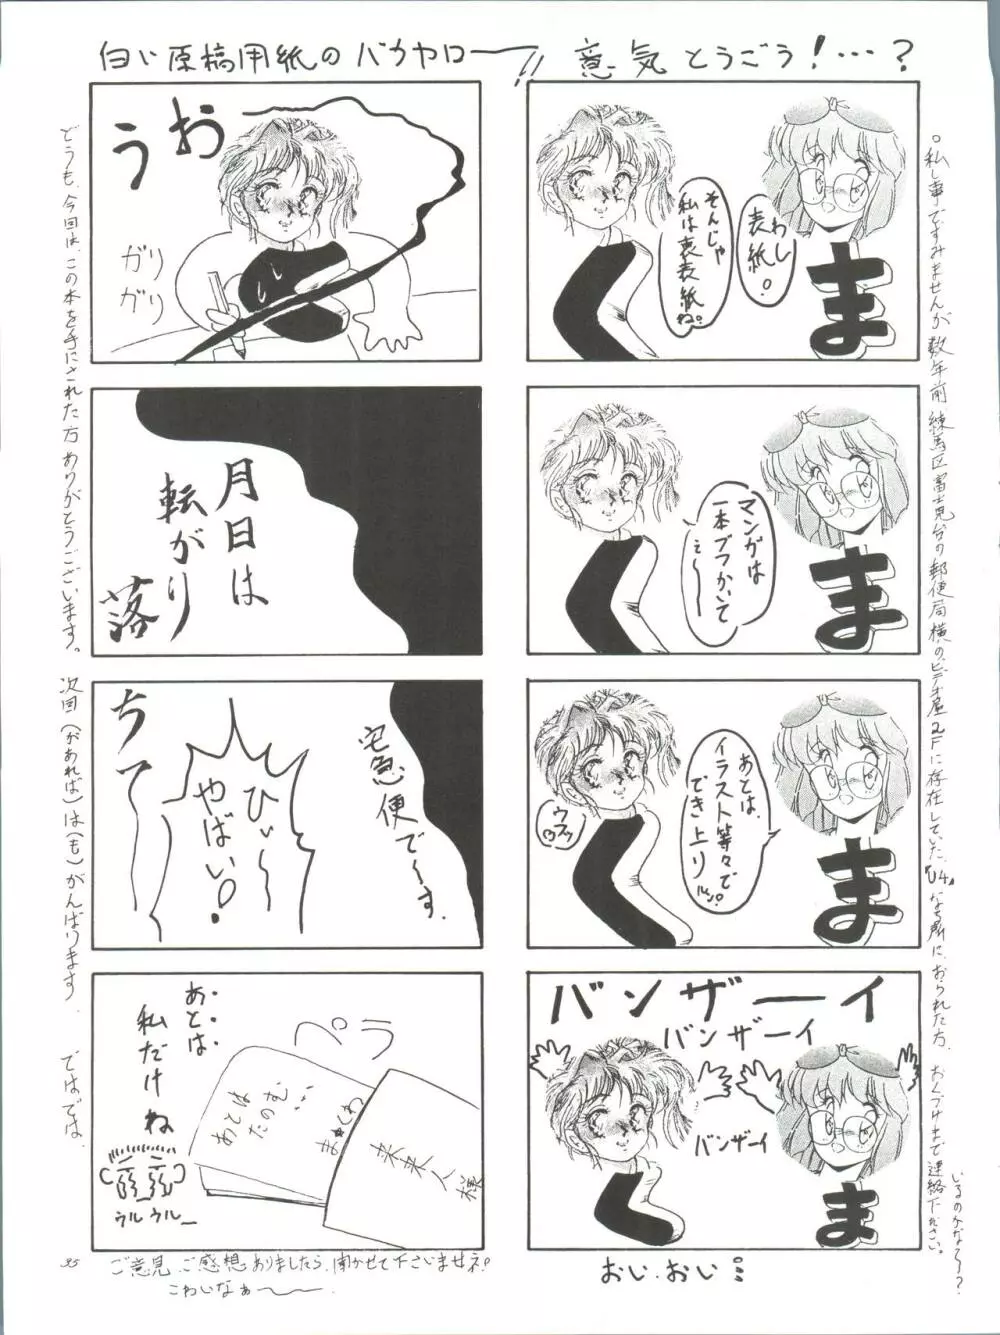 意気とうごう!…?
わし
表紙。
そんじゃ
私は裏表紙ね。
ま
マンガは
一本ブツかいて
え~~
ま
あとは、
イラスト等々で
でき上りルン♪
ウフッ
ま
バンザーイ
バンザーイ
バンザーイ
ま
おい、おい…
。私し事ですみませんが数年前練馬区富士見台の郵便局横のビデオ屋2Fに存在していた、『U4』なる所に、おられた方、おくづけまで連絡下ださい。
いるのかな~?
白い原稿用紙のバカヤロー!!
うお
ガリ
ガリ
月日は
転がり
落
ちて
宅急便で~す。
ひぃ~
やばい!
あとは
私だけね
ウルウル_
ペラ
あと
たのむ…
ま★くわ
某某人様
どうも、今回は、この本を手にされた方ありがとうございます。次回(があれば)は(も)がんばります。ではでは。
ご意見、ご感想ありましたら、聞かせて下さいませネ。
こわいなぁ~~。
35